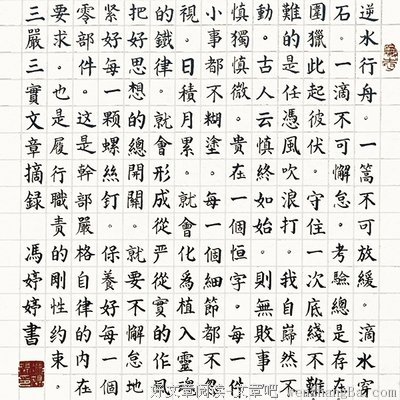 逆水行舟。一篙不可放緩。滴水穿
石。一滴不可懈怠。考驗總是存在
圍獵此起彼伏。守住一次底綫不難
難的是任憑風吹浪打。我自巋然不
動。古人云慎終如始。則無敗事
慎獨慎微。貴在一個恒字。每一件
小事都不糊塗。每一個細節都不忽
視。日積月累。就會化為植入靈魂
的鐵律。就會形成從嚴從實的作風
把好思想的總開關。就要不懈怠地
緊好每一顆螺絲釘。保養好每一個
零部件。這是幹部嚴格自律的內在
要求。也是履行職責的剛性約束。
三嚴三實文章摘録 馮婷婷書
好文章阅读-文章吧
wenzhangba.com